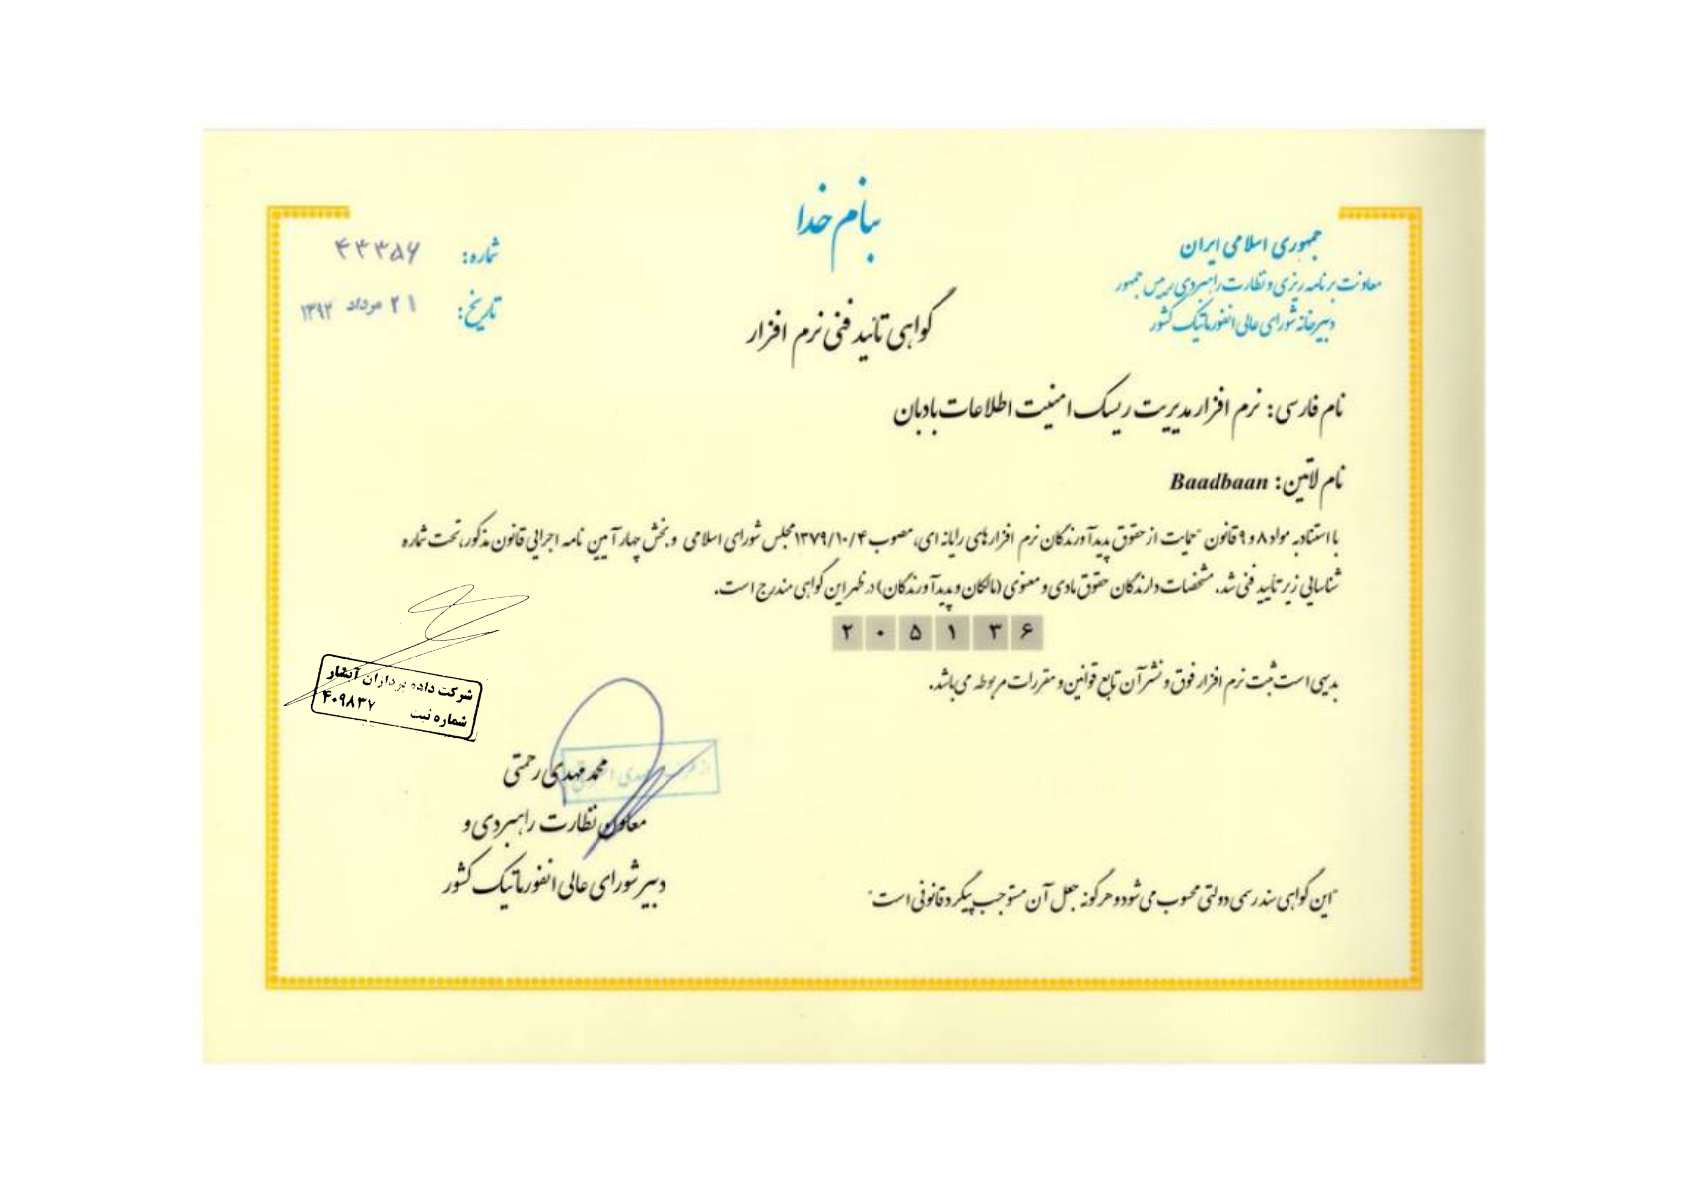 بنام خدا
جمهوری اسلامی ایران
معاونت برنامه ریزی و نظارت راهبردی رییس جمهور
دبیرخانه شورای عالی انفورماتیک کشور
شماره: ۴۳۳۵۶
تاریخ: ۲۱ مرداد ۱۳۹۲
گواهی تائید فنی نرم افزار
نام فارسی: نرم افزار مدیریت ریسک امنیت اطلاعات بادبان
نام لاتین: Baadbaan
با استناد به مواد ۸ و ۹ قانون حمایت از حقوق پدیدآورندگان نرم افزارهای رایانه ای، مصوب ۱۳۷۹/۱۰/۴ مجلس شورای اسلامی و بخش چهار آیین نامه اجرایی قانون مذکور، تحت شماره
شناسایی زیر تأیید فنی شد. مشخصات دارندگان حقوق مادی و معنوی (مالکان و پدیدآورندگان) در ظهر این گواهی مندرج است.
۲۰۵۱۳۶
بدیهی است ثبت نرم افزار فوق و نشر آن تابع قوانین و مقررات مربوطه می باشد.
شرکت داده پردازان آبشار
شماره ثبت ۴۰۹۸۳۷
محمد مهدی رحمتی
معاون نظارت راهبردی و
دبیر شورای عالی انفورماتیک کشور
"این گواهی سند رسمی دولتی محسوب می شود و هرگونه جعل آن مستوجب پیگرد قانونی است"